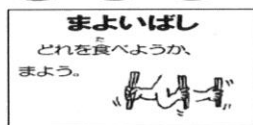 まよいばし
どれを食べようか、
まよう。